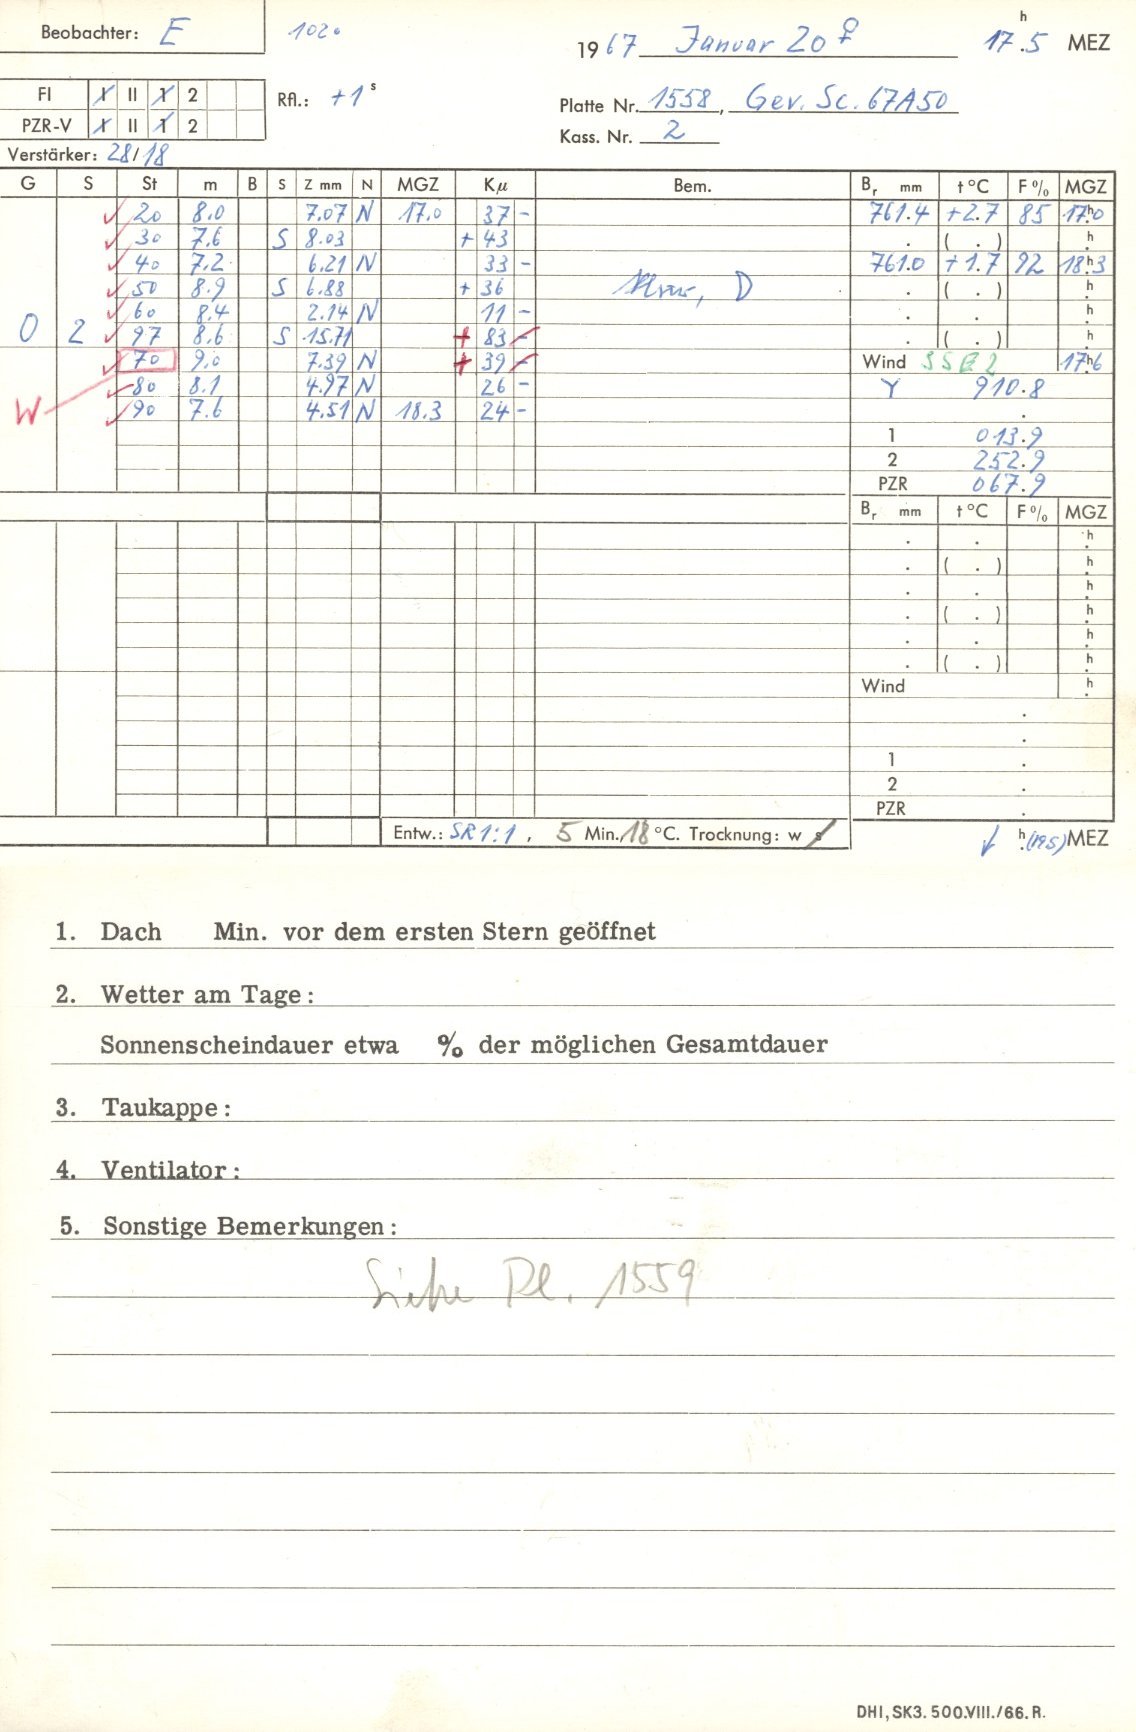 Beobachter: E 1020 1967 Januar 20 ♀ 17.5 h MEZ
FI I II 1 2 Rfl.: +1 s Platte Nr. 1558, Gev. Sc. 67A50
PZR-V I II 1 2 Kass. Nr. 2
Verstärker: 28/18
G S St m B S Z mm N MGZ Kμ Bem. Br mm t °C F % MGZ
20 8.0 7.07 N 17.0 37 - 761.4 +2.7 85 17h0
30 7.6 S 8.03 + 43 . ( . ) h
40 7.2 6.21 N 33 - 761.0 +1.7 92 18h3
50 8.9 S 6.88 + 36 D . ( . ) h
60 8.4 2.14 N 11 - . . h
0 2 97 8.6 S 15.71 + 83 - . ( . ) h
70 9.0 7.39 N + 39 - Wind SSE 2 17h6
80 8.1 4.97 N 26 - Y 910.8
W 90 7.6 4.51 N 18.3 24 - .
1 013.9
2 252.9
PZR 067.9
Br mm t °C F % MGZ
. . h
. ( . ) h
. . h
. ( . ) h
. . h
. ( . ) h
Wind h
.
.
1 .
2 .
PZR .
Entw.: SR 1:1, 5 Min. 18 °C. Trocknung: w s h (19.5) MEZ
1. Dach Min. vor dem ersten Stern geöffnet
2. Wetter am Tage:
Sonnenscheindauer etwa % der möglichen Gesamtdauer
3. Taukappe:
4. Ventilator:
5. Sonstige Bemerkungen:
Siehe Pl. 1559
DHI, SK3. 500.VIII./66. R.